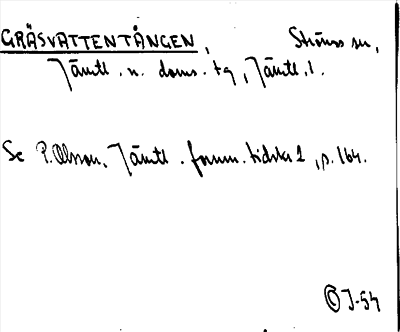 GRÄSVATTENTÅNGEN, Ströms sn,
Jämtl. n. doms. tg, Jämtl. l.
Se P. Olsson, Jämtl. fornm. tidskr 1, p. 164.
J-54